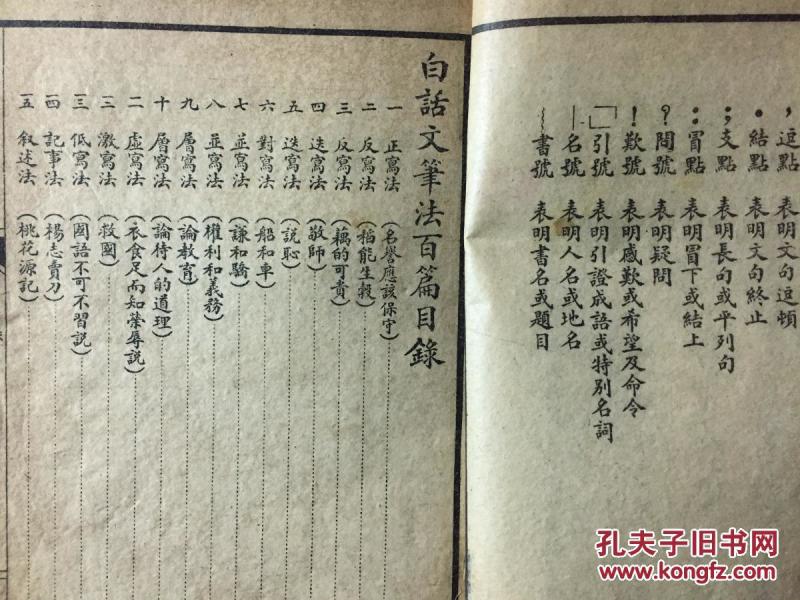 ， 逗點 表明文句逗頓
． 結點 表明文句終止
； 支點 表明長句或平列句
： 冒點 表明冒下或結上
？ 問號 表明疑問
！ 歎號 表明感歎或希望及命令
「」 引號 表明引證成語或特別名詞
｜ 名號 表明人名或地名
﹏ 書號 表明書名或題目
白話文筆法百篇目錄
一 正寫法 (名譽應該保守)
二 反寫法 (稻能生穀)
三 反寫法 (藕的可貴)
四 迭寫法 (敬師)
五 迭寫法 (説恥)
六 對寫法 (船和車)
七 並寫法 (謙和驕)
八 並寫法 (權利和義務)
九 層寫法 (論教育)
十 層寫法 (論待人的道理)
一一 虛寫法 (衣食足而知榮辱説)
一二 激寫法 (救國)
一三 低寫法 (國語不可不習説)
一四 記事法 (楊志賣刀)
一五 叙述法 (桃花源記)
孔夫子旧书网
www.kongfz.com